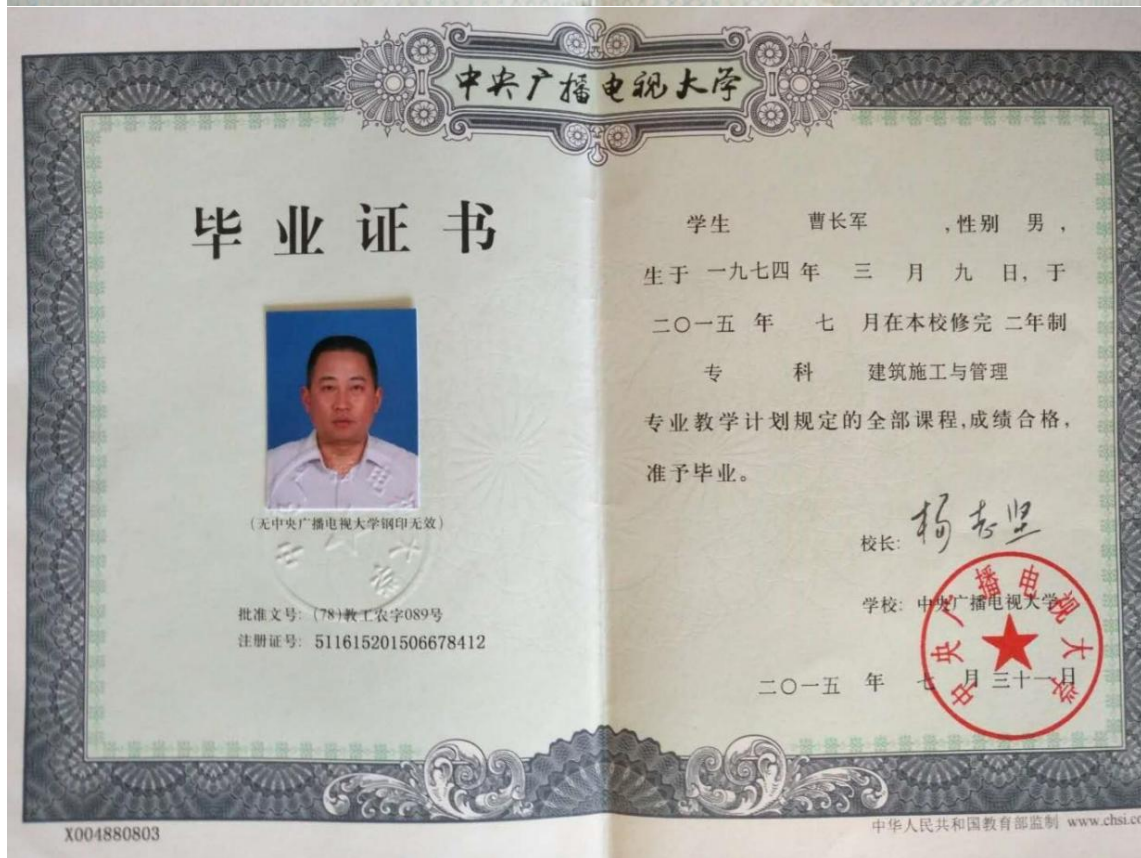 中央广播电视大学
毕业证书
(无中央广播电视大学钢印无效)
批准文号: (78)教工农字089号
注册证号: 511615201506678412
X004880803
学生 曹长军 ,性别 男 ,
生于 一九七四 年 三 月 九 日, 于
二〇一五 年 七 月在本校修完 二年制
专 科 建筑施工与管理
专业教学计划规定的全部课程,成绩合格,
准予毕业。
校长: 杨志坚
学校: 中央广播电视大学
二〇一五 年 七 月 三十一日
中央广播电视大学
中华人民共和国教育部监制 www.chsi.co